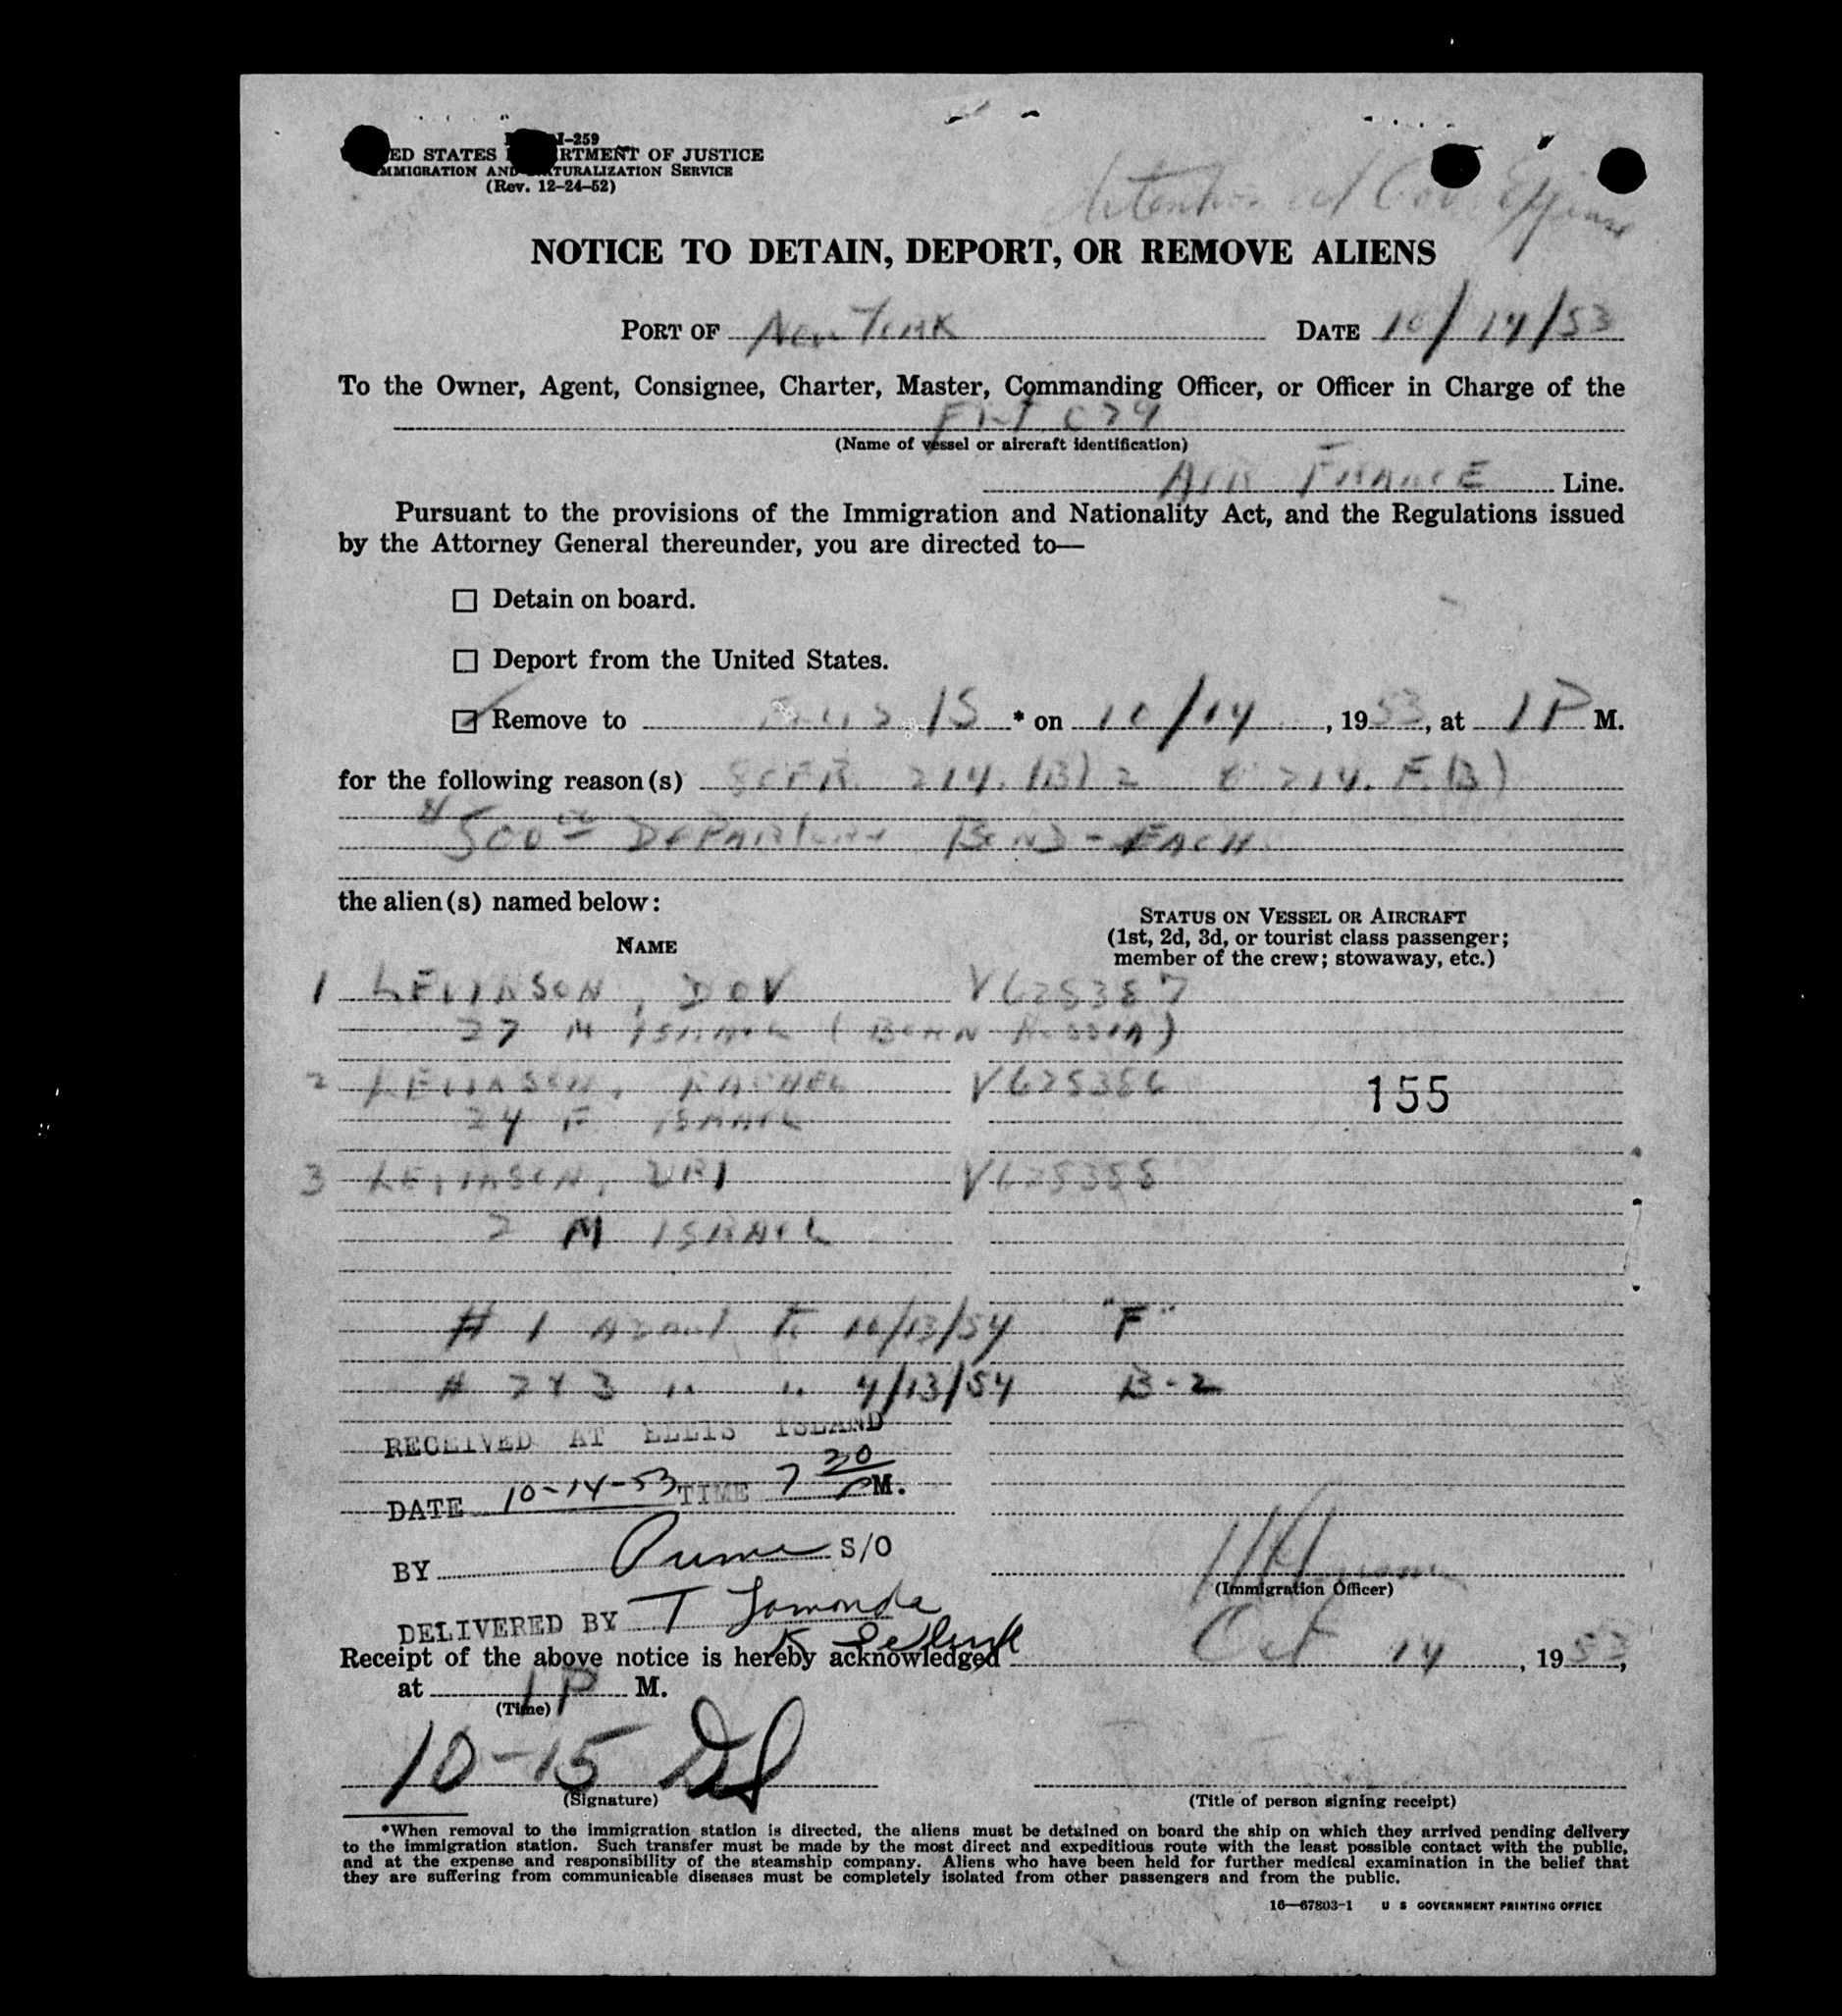 I-259
ED STATES RTMENT OF JUSTICE
MMIGRATION AND TURALIZATION SERVICE
(Rev. 12-24-52)
Detention at Gov Expense
NOTICE TO DETAIN, DEPORT, OR REMOVE ALIENS
PORT OF New York DATE 10/14/53
To the Owner, Agent, Consignee, Charter, Master, Commanding Officer, or Officer in Charge of the
079
(Name of vessel or aircraft identification)
AIR FRANCE Line.
Pursuant to the provisions of the Immigration and Nationality Act, and the Regulations issued
by the Attorney General thereunder, you are directed to—
Detain on board.
Deport from the United States.
Remove to * on 10/14, 1953, at 1 P M.
for the following reason(s) 8 CFR 214.(B) 2 214. F.(B)
$500.00 DEPARTURE BOND - EACH
the alien(s) named below:
STATUS ON VESSEL OR AIRCRAFT
NAME (1st, 2d, 3d, or tourist class passenger;
member of the crew; stowaway, etc.)
1 LEVINSON, DOV V625387
27 M ISRAEL (BORN RUSSIA)
2 LEVINSON, RACHEL V625386
24 F ISRAEL
155
3 LEVINSON, URI V625388
2 M ISRAEL
# 1 Admit To 10/13/54 "F"
# 2 & 3 " " 4/13/54 B-2
RECEIVED AT ELLIS ISLAND
DATE 10-14-53 TIME 7 30 PM.
BY S/O
(Immigration Officer)
DELIVERED BY T
Receipt of the above notice is hereby acknowledged Oct 14, 1953,
at 1 P M.
(Time)
10-15
(Signature) (Title of person signing receipt)
*When removal to the immigration station is directed, the aliens must be detained on board the ship on which they arrived pending delivery
to the immigration station. Such transfer must be made by the most direct and expeditious route with the least possible contact with the public,
and at the expense and responsibility of the steamship company. Aliens who have been held for further medical examination in the belief that
they are suffering from communicable diseases must be completely isolated from other passengers and from the public.
16—67803-1 U S GOVERNMENT PRINTING OFFICE